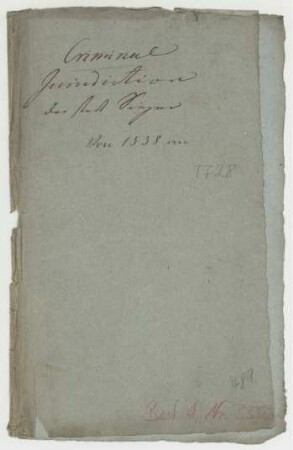 Criminal
Jurisdiction
der Statt Siegen
Von 1538 an
1728
489
Best A Nr.